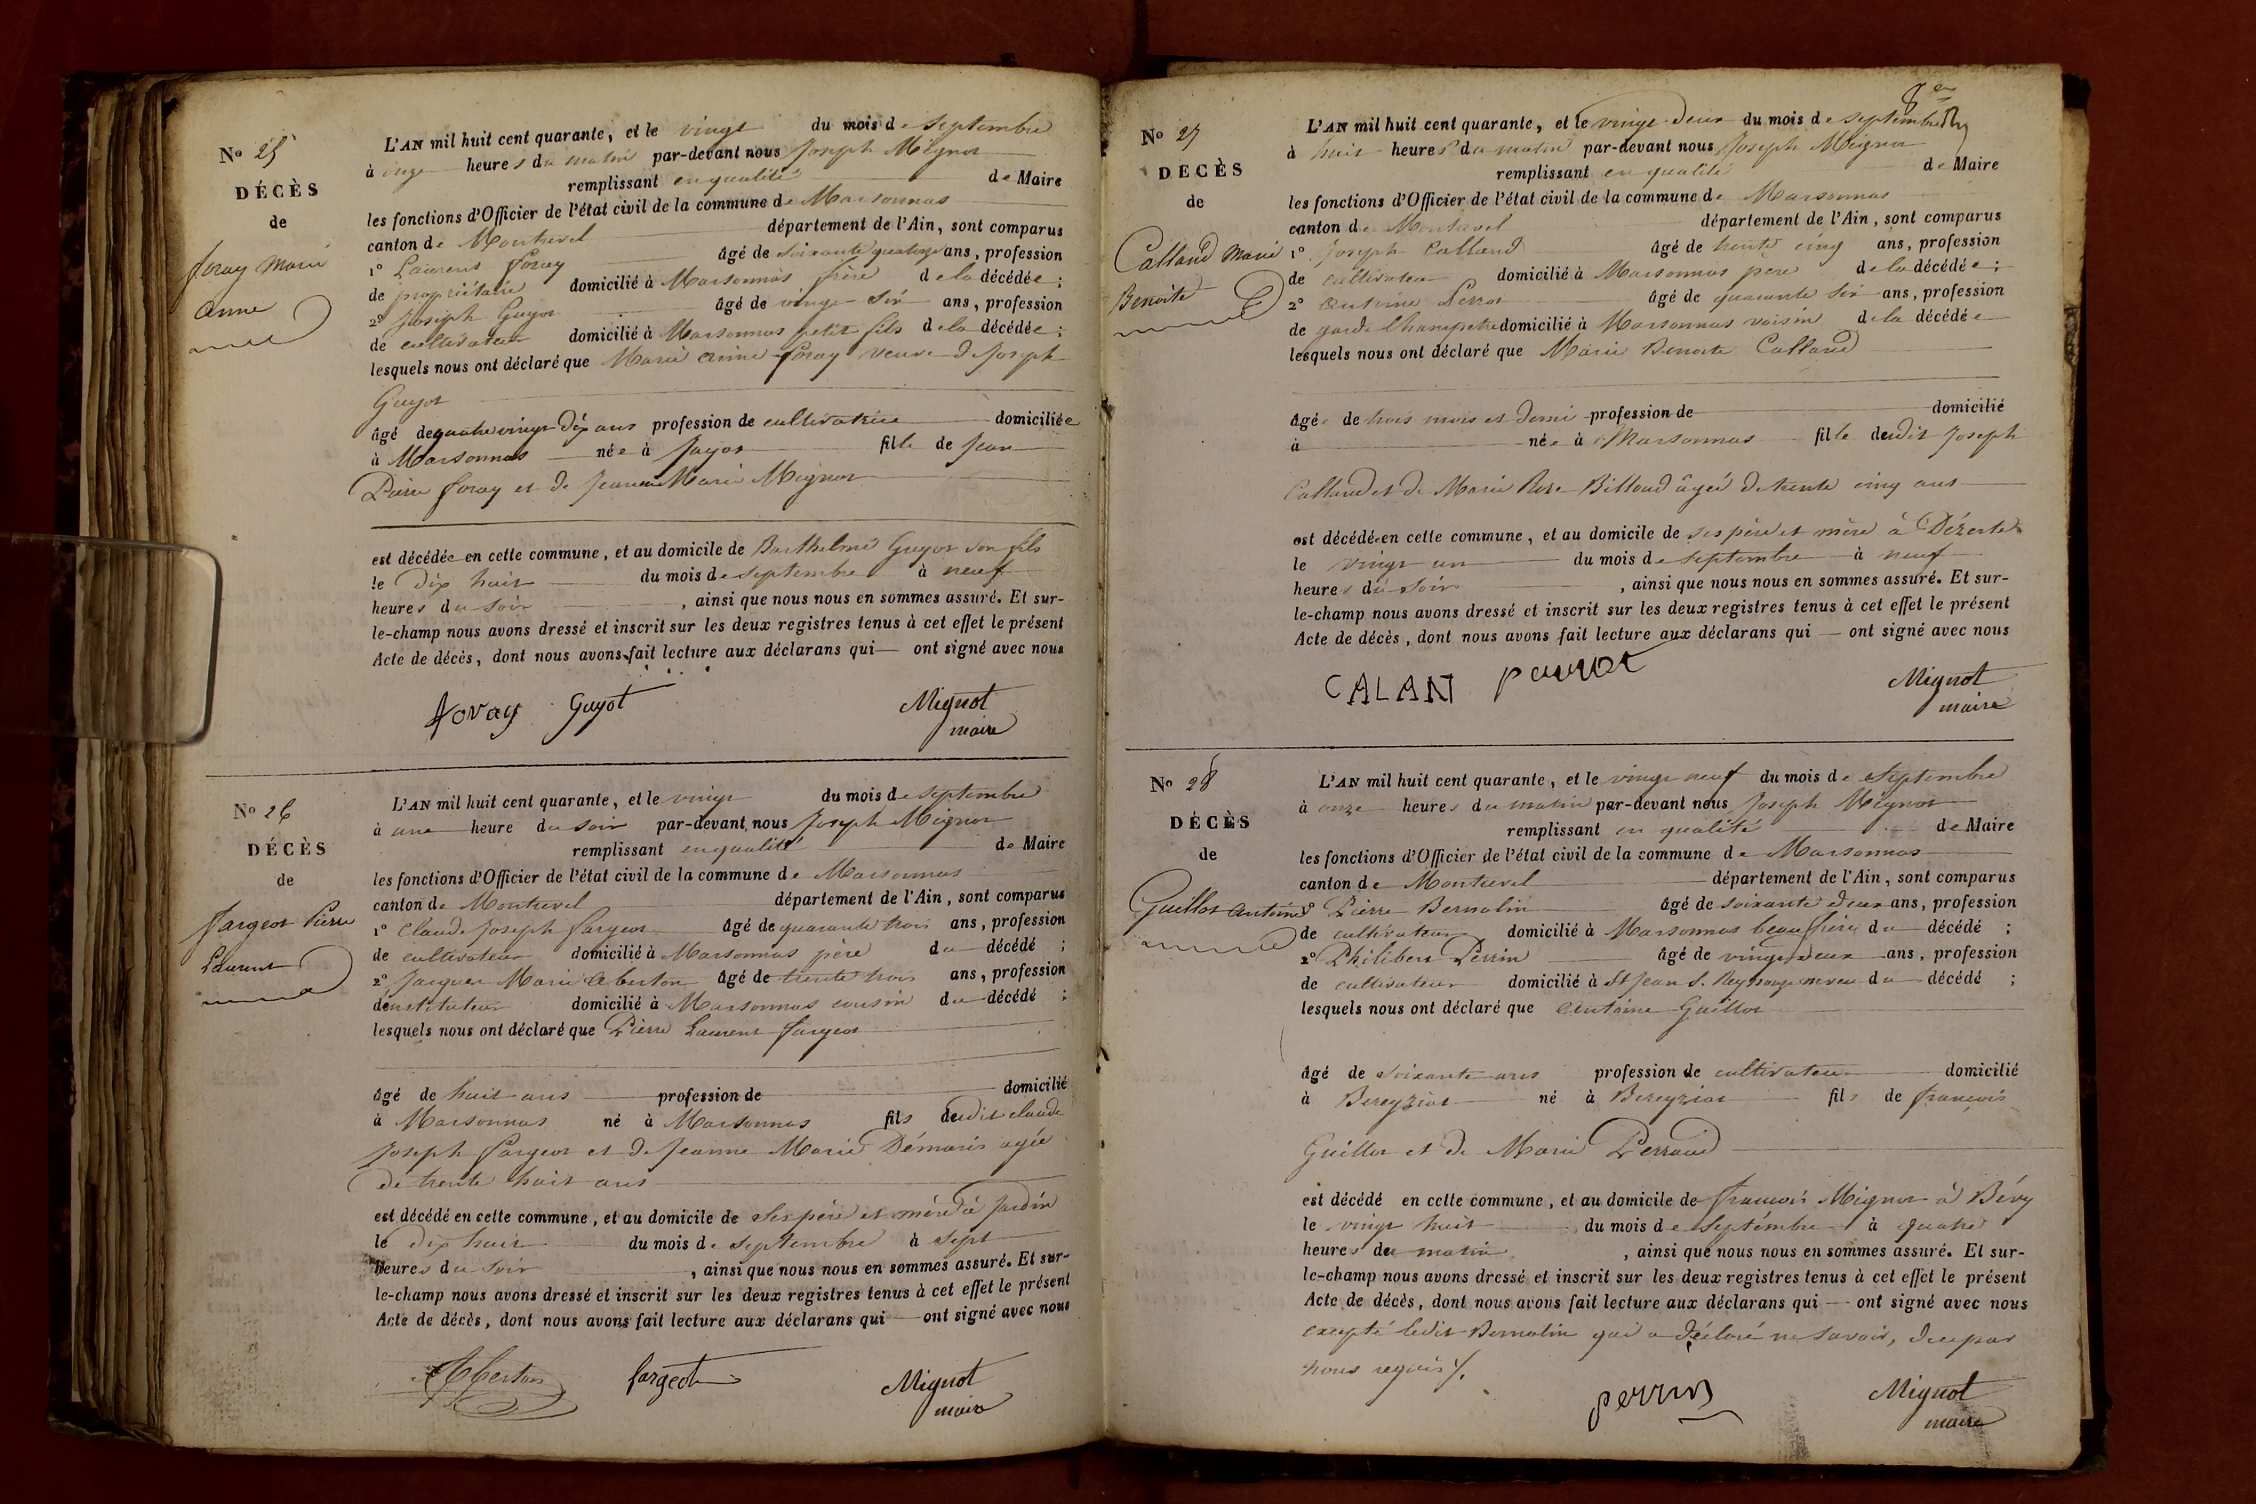 N° 25
DÉCÈS
de
foray Marie
anne
L'AN mil huit cent quarante, et le vingt du mois de Septembre
à onze heures du matin par-devant nous Joseph Mignot
remplissant en qualité de Maire
les fonctions d'Officier de l'état civil de la commune de Marsonnas
canton de Montrevel département de l'Ain, sont comparus
1° Laurent foray âgé de soixante quatorze ans, profession
de propriétaire domicilié à Marsonnas frère de la décédée;
2° Joseph Guyot âgé de vingt-six ans, profession
de cultivateur domicilié à Marsonnas petit fils de la décédée;
lesquels nous ont déclaré que Marie anne foray veuve de Joseph
Guyot
âgé de quatre vingt dix ans profession de cultivatrice domiciliée
à Marsonnas née à Jayat fille de Jean
Pierre foray et de Jeanne Marie Mignot
est décédée en cette commune, et au domicile de Barthelmi Guyot son fils
le dix huit du mois de septembre à neuf
heures du soir, ainsi que nous nous en sommes assuré. Et sur-
le-champ nous avons dressé et inscrit sur les deux registres tenus à cet effet le présent
Acte de décès, dont nous avons fait lecture aux déclarans qui — ont signé avec nous
foray Guyot Mignot
maire
N° 26
DÉCÈS
de
fargeot Pierre
Laurent
L'AN mil huit cent quarante, et le vingt du mois de septembre
à une heure du soir par-devant nous Joseph Mignot
remplissant en qualité de Maire
les fonctions d'Officier de l'état civil de la commune de Marsonnas
canton de Montrevel département de l'Ain, sont comparus
1° Claude Joseph fargeot âgé de quarante trois ans, profession
de cultivateur domicilié à Marsonnas père du décédé;
2° Jacques Marie Aberton âgé de trente trois ans, profession
d'instituteur domicilié à Marsonnas cousin du décédé;
lesquels nous ont déclaré que Pierre Laurent fargeot
âgé de huit ans profession de domicilié
à Marsonnas né à Marsonnas fils dudit claude
Joseph fargeot et de Jeanne Marie Démaris agée
de trente huit ans
est décédé en cette commune, et au domicile de ses père et mère à Jardin
le dix huit du mois de septembre à sept
heures du soir, ainsi que nous nous en sommes assuré. Et sur-
le-champ nous avons dressé et inscrit sur les deux registres tenus à cet effet le présent
Acte de décès, dont nous avons fait lecture aux déclarans qui — ont signé avec nous
Aberton fargeot Mignot
maire
N° 27
DÉCÈS
de
Calland Marie
Benoite
L'AN mil huit cent quarante, et le vingt-deux du mois de septembre
à huit heures du matin par-devant nous Joseph Mignot
remplissant en qualité de Maire
les fonctions d'Officier de l'état civil de la commune de Marsonnas
canton de Montrevel département de l'Ain, sont comparus
1° Joseph Calland âgé de trente cinq ans, profession
de cultivateur domicilié à Marsonnas père de la décédée;
2° Antoine Perrot âgé de quarante six ans, profession
de garde Champetre domicilié à Marsonnas voisin de la décédée
lesquels nous ont déclaré que Marie Benoite Calland
âgée de trois mois et demi profession de domicilié
à née à Marsonnas fille dudit Joseph
Calland et de Marie Rose Billoud âgée de trente cinq ans
est décédée en cette commune, et au domicile de ses père et mère à Dézertes
le vingt un du mois de septembre à neuf
heures du soir, ainsi que nous nous en sommes assuré. Et sur-
le-champ nous avons dressé et inscrit sur les deux registres tenus à cet effet le présent
Acte de décès, dont nous avons fait lecture aux déclarans qui — ont signé avec nous
CALAN perrot Mignot
maire
N° 28
DÉCÈS
de
Guillot antoine
L'AN mil huit cent quarante, et le vingt neuf du mois de Septembre
à onze heures du matin par-devant nous Joseph Mignot
remplissant en qualité de Maire
les fonctions d'Officier de l'état civil de la commune de Marsonnas
canton de Montrevel département de l'Ain, sont comparus
1° Pierre Bernolin âgé de soixante deux ans, profession
de cultivateur domicilié à Marsonnas beau frère du décédé;
2° Philibert Perrin âgé de vingt deux ans, profession
de cultivateur domicilié à St Jean S. Reyssouze neveu du décédé;
lesquels nous ont déclaré que antoine Guillot
âgé de soixante ans profession de cultivateur domicilié
à Bereyziat né à Bereyziat fils de françois
Guillot et de Marie Perraud
est décédé en cette commune, et au domicile de françois Mignot à Bévy
le vingt huit du mois de septembre à quatre
heures du matin, ainsi que nous nous en sommes assuré. Et sur-
le-champ nous avons dressé et inscrit sur les deux registres tenus à cet effet le présent
Acte de décès, dont nous avons fait lecture aux déclarans qui — ont signé avec nous
excepté ledit Bernolin qui a déclaré ne savoir, de ce par
nous requis /.
perrin Mignot
maire